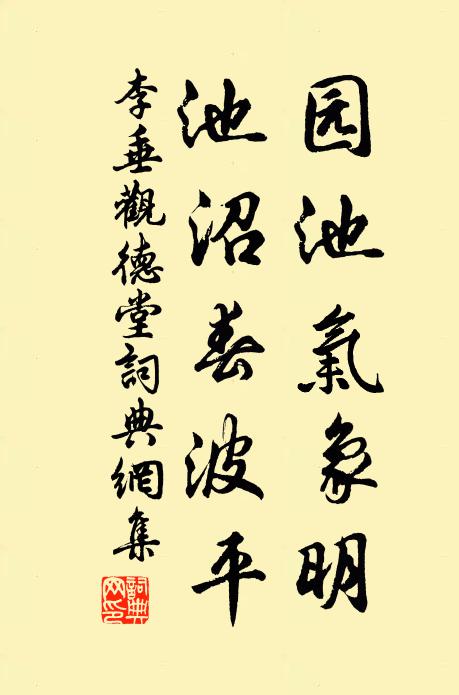 园池氣象明
池沼春波平
李垂觀德堂詞典網集
詞典
网印